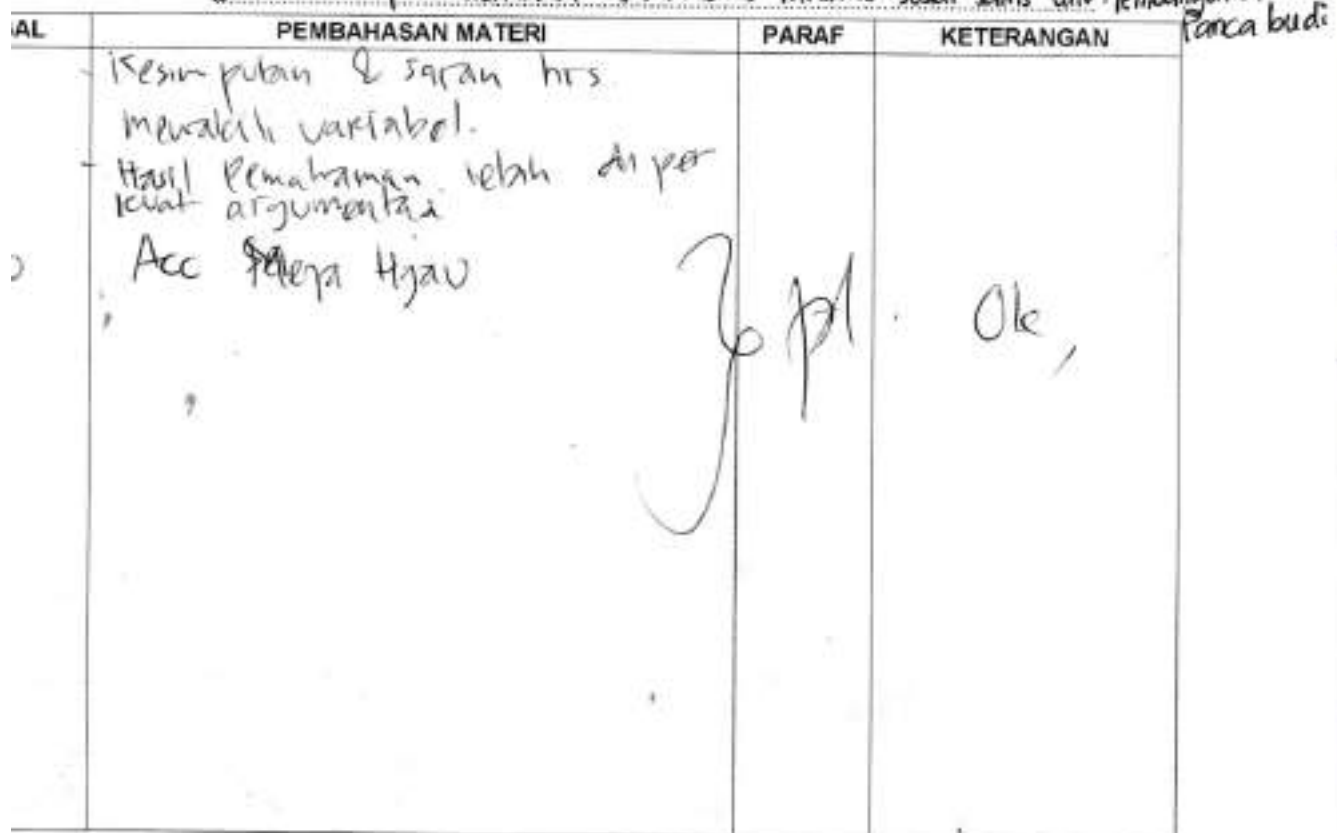 sosial sains univ pembangunan
Panca budi
AL PEMBAHASAN MATERI PARAF KETERANGAN
- Kesimpulan & saran hrs
mewakili variabel.
- Hasil Pemahaman lebih di per
kuat argumentasi
Acc Meja Hijau
Ok,